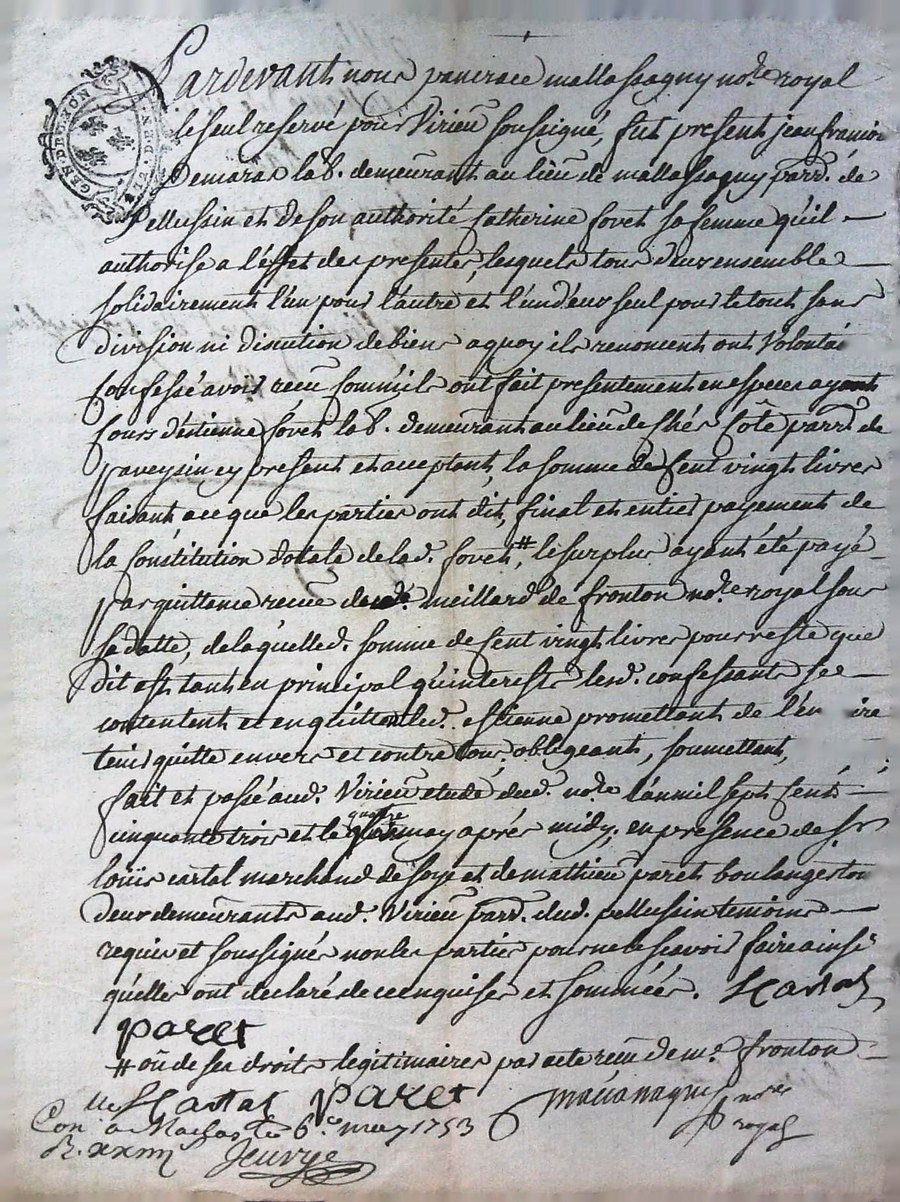 GEN. DE LYON
Pardevant nous pancrace mallassagny no.re royal
le seul reservé pour Virieu soussigné, fut present jean francois
Demaras lab.r demeurant au lieu de mallassagny parr.e de
Pellussin et de son authorité Catherine Covet sa femme qu'il
authorise a l'effet des presentes, lesquels tous deux ensemble
solidairement l'un pour l'autre et l'un d'eux seul pour le tout sans
division ni discution de biens a quoy ils renoncent ont Volontai
Confessé avoir receu comm'ils ont fait presentement en especes ayant
Cours d'estienne Covet lab.r demeurant au lieu de Chés Côte parr.e de
paveysin cy present et acceptant, la somme de Cent vingt livres
faisant a ce que les parties ont dit, final et entier payement de
la Constitution dotale de lad. Covet #, le surplus ayant été payé
par quittance receue meillard de fronton no.re royal sous
sa datte, de laquelle d. somme de Cent vingt livres pour reste que
dit est tant en principal qu'interests lesd. confessants se
contentent et en quittent led. estienne promettant de l'en ire
tenir quitte envers et contre tous. obligeant, soumettant,
fait et passé aud. Virieu etude dud. no.re l'an mil sept Cents
cinquante trois et le quatre may aprés midy, en presence de s.r
loüis cartal marchand de soye et de mathieu paret boulanger tou
deux demeurants aud. Virieu parr.e dud. pellussin temoins
requis et soussignés non les parties pour ne le scavoir faire ainsi
qu'elles ont declaré de ce enquises et sommées. LCartal
paret
# ou de ses droits legitimaires par acte receu de m.e fronton
LCartal paret mallassagny no.re
royal
Con. a Maclas le 6.e may 1753
R. xxiiii